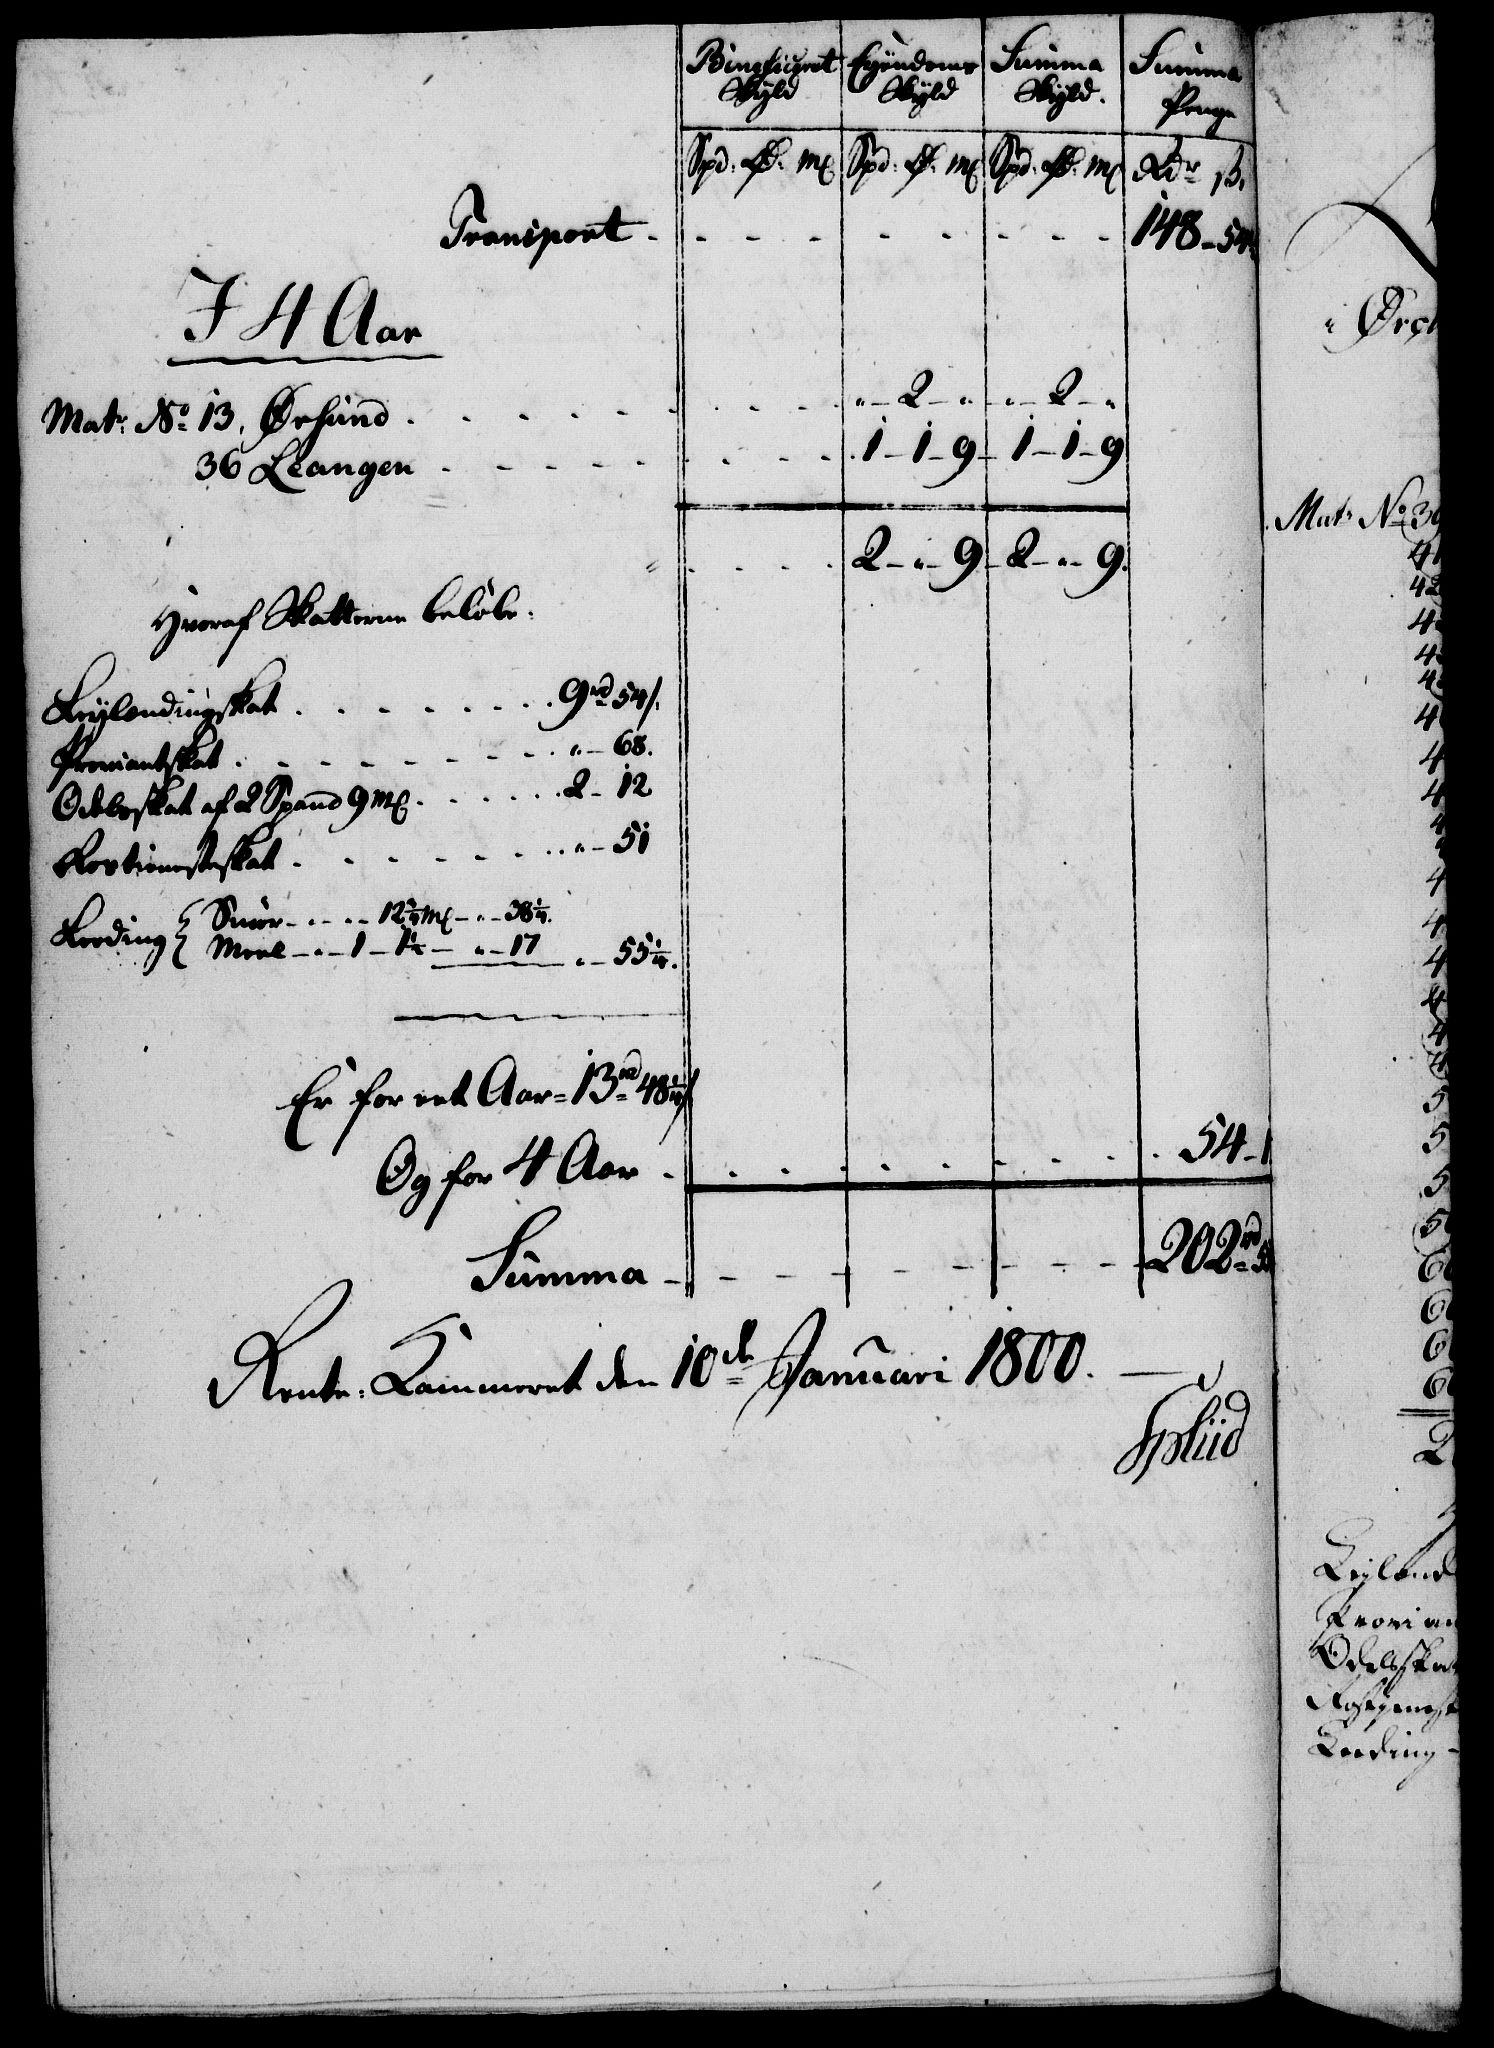 Beneficeret Skyld | Eyendoms Skyld | Summa Skyld. | Summa Penge
Spd: Ø: Mƺ | Spd: Ø: Mƺ | Spd: Ø: Mƺ | Rdr ß.
Transport - - - - - - - - - 148 - 54
I 4 Aar
Matr: No 13, Ørsund . . . . . . . . „ - 2 - „ „ - 2 - „
36 Leangen . . . . . . . . 1 - 1 - 9 - 1 - 1 - 9
2 - „ - 9 - 2 - „ - 9.
Hvoraf Skatterne beløbe:
Leylendingskat . . . . . . . . 9rd 54ß.
Proviantskat . . . . . . . . „ - 68.
Odelsskat af 2 Spand 9 Mƺ . . . . . . 2 - 12
Rostienesteskat . . . . . . . . „ - 51
Leeding { Smør - „ - „ - 12 Mƺ - „ - 38¼.
Meel - „ - 1 - 1½ - „ - 17 „ - 55¼.
Er for eet Aar = 13rd 48¼ß
Og for 4 Aar - . . . . . . . . 54 - 1
Summa - - - - - - - - - 202rd
Rente-Kammeret den 10de Januari 1800.
Spliid
i
Matr No 39
Leylend
Provian
Odelsskat
Rostienest
Leeding -